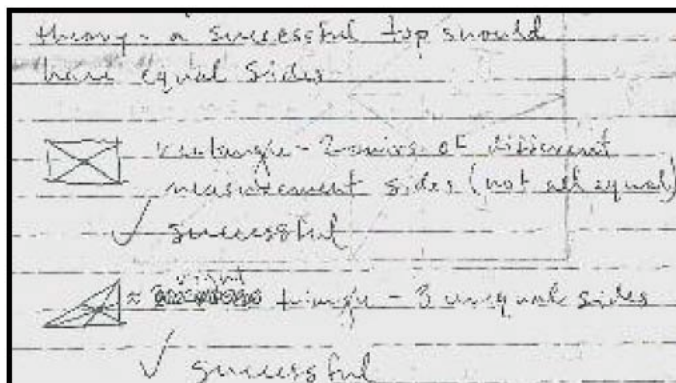 theory - a successful top should
have equal sides
rectangle - 2 pairs of different
measurement sides (not all equal)
✓ successful
right
≈ triangle - 3 unequal sides
✓ successful